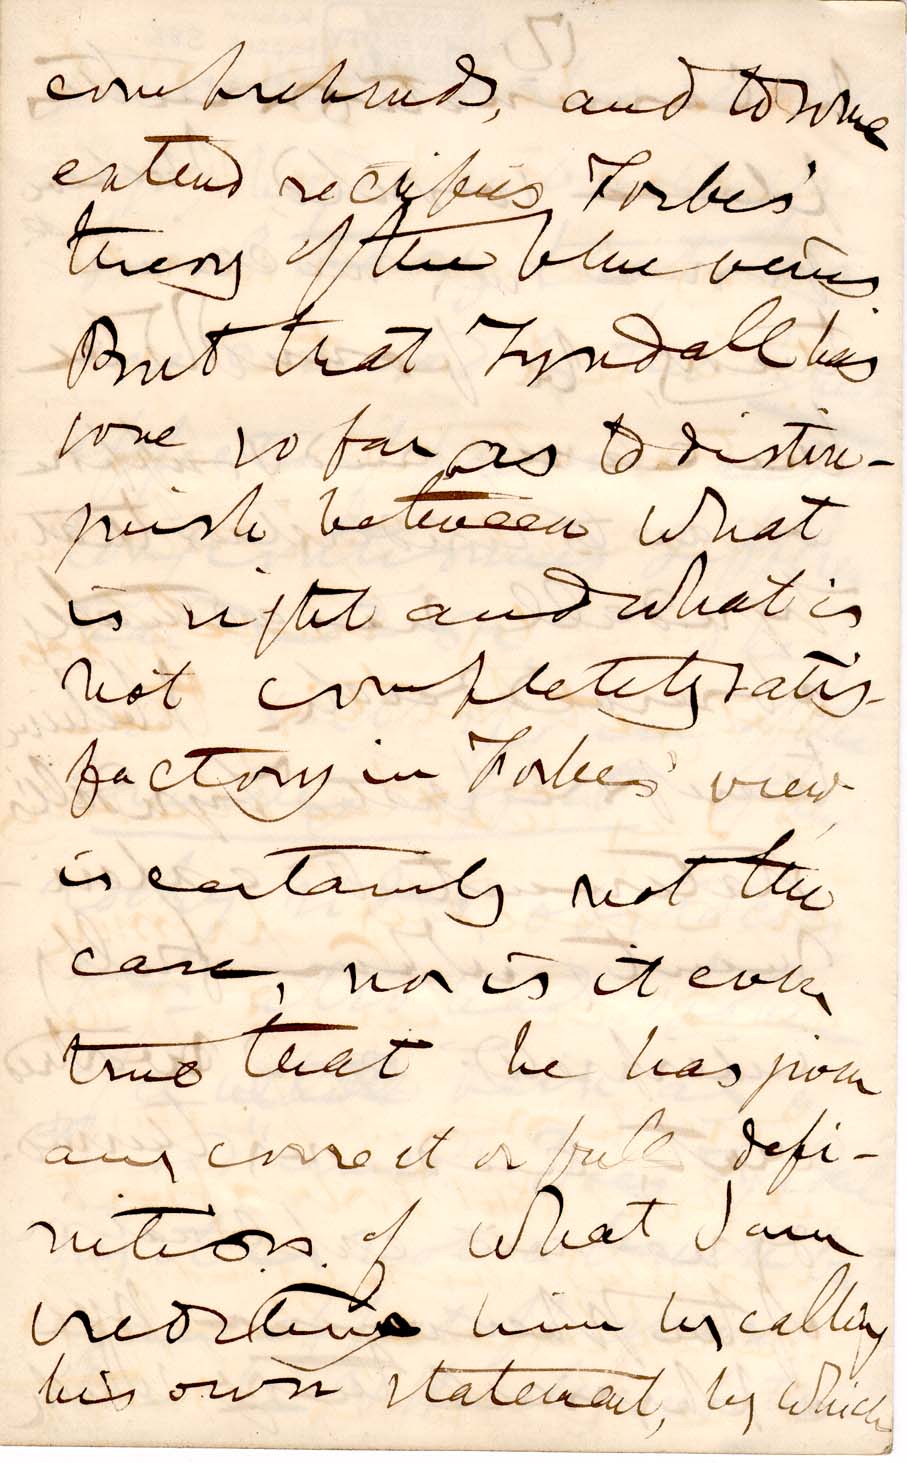 comprehends, and to some
extend rectifies Forbes'
theory of the blue veins
But that Tyndall has
gone so far as to distin-
guish between what
is right and what is
not completely satis-
factory in Forbes' view,
is certainly not the
case, nor is it even
true that he has given
any correct or full defi-
nition of what I am
him by calling
his own statement, by which